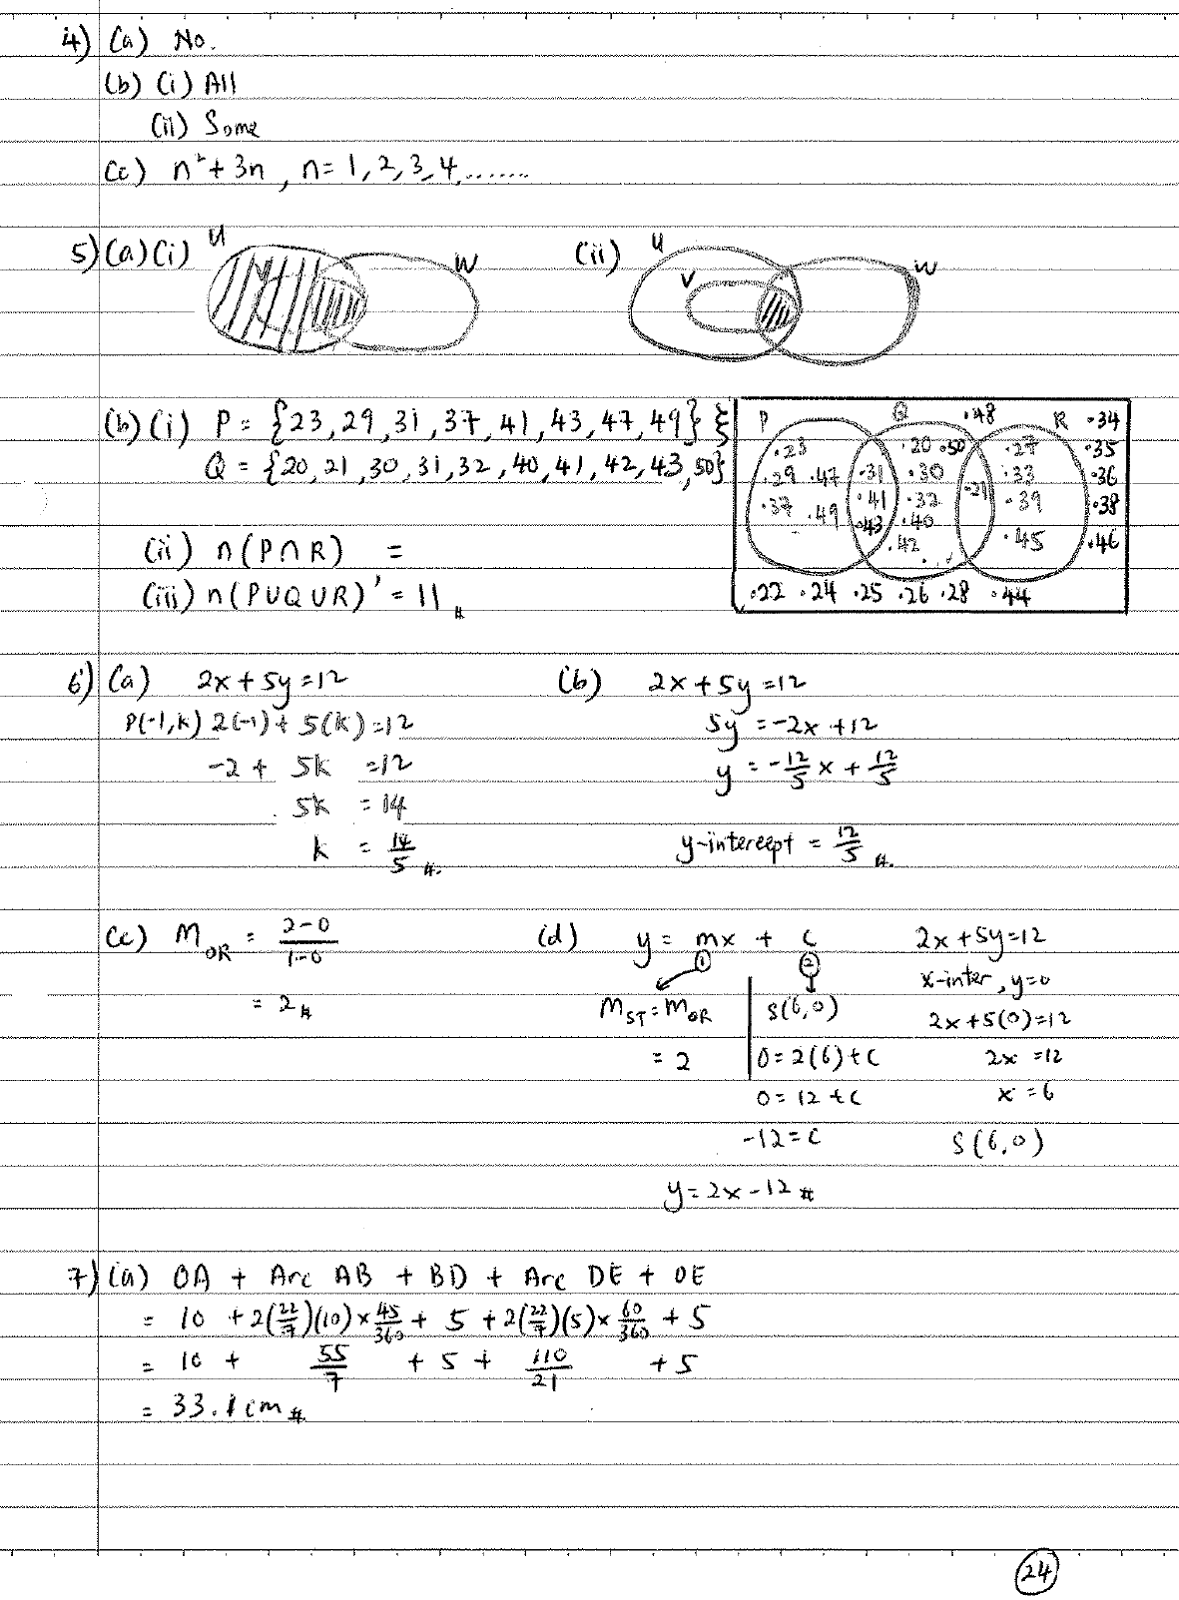 4) (a) No.
(b) (i) All
(ii) Some
(c) n² + 3n , n = 1, 2, 3, 4, .......
5) (a) (i) U V W (ii) U V W
(b) (i) P = {23, 29, 31, 37, 41, 43, 47, 49}
Q = {20, 21, 30, 31, 32, 40, 41, 42, 43, 50}
ξ P Q .48 R .34
.23 .20 .50 .27 .35
.29 .47 .31 .30 .21 .33 .36
.37 .49 .41 .32 .39 .38
.43 .40 .42 .45 .46
.22 .24 .25 .26 .28 .44
(ii) n(P∩R) =
(iii) n(P∪Q∪R)' = 11 #
6) (a) 2x + 5y = 12
P(-1, k) 2(-1) + 5(k) = 12
-2 + 5k = 12
5k = 14
k = 14/5 #.
(b) 2x + 5y = 12
5y = -2x + 12
y = -12/5 x + 12/5
y-intercept = 12/5 #.
(c) M OR = 2-0/1-0
= 2 #
(d) y = mx + c
① ②
M ST = M OR
= 2
S(6,0)
0 = 2(6) + c
0 = 12 + c
-12 = c
y = 2x - 12 #
2x + 5y = 12
x-inter, y=0
2x + 5(0) = 12
2x = 12
x = 6
S(6,0)
7) (a) OA + Arc AB + BD + Arc DE + OE
= 10 + 2(22/7)(10) × 45/360 + 5 + 2(22/7)(5) × 60/360 + 5
= 10 + 55/7 + 5 + 110/21 + 5
= 33.1 cm #
24